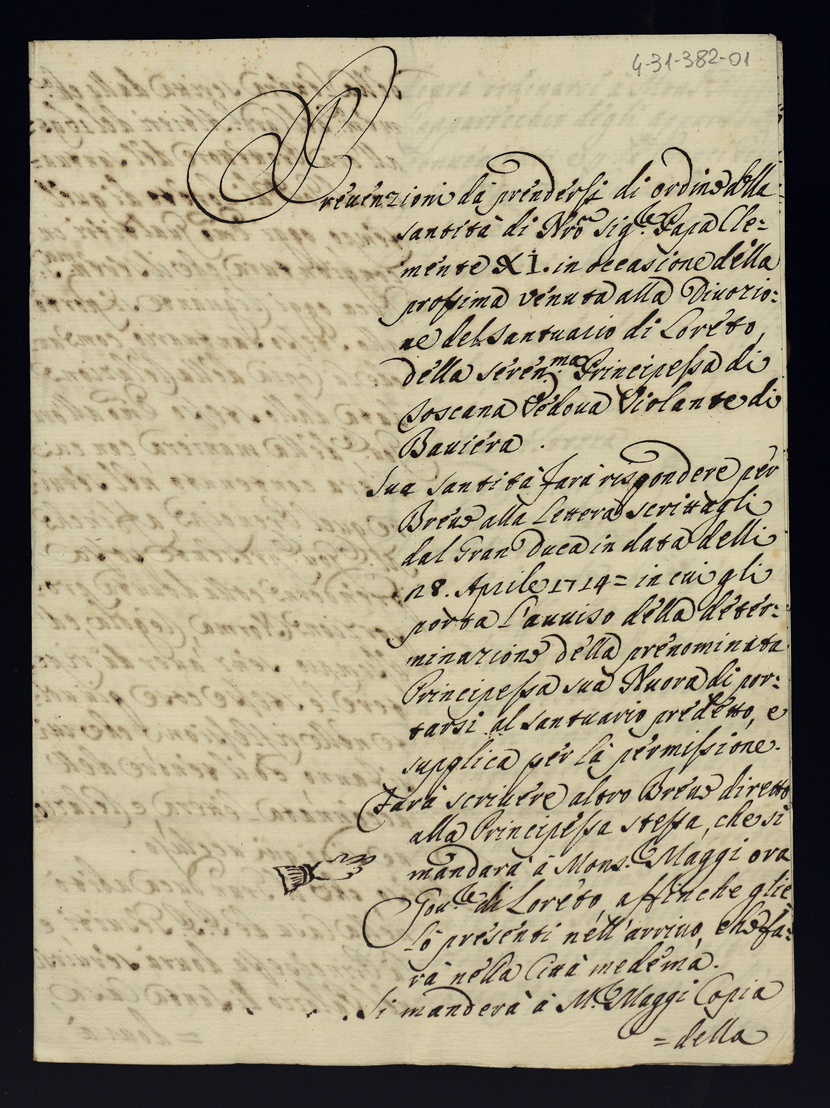 4-31-382-01
Prevenzioni da prendersi di ordine della
santità di Nrõ Sig.re Papa Cle=
mente XI. in occasione della
prossima venuta alla Divozio=
ne del Santuario di Loreto,
della Seren.ma Principessa di
Toscana Vedova Violante di
Baviera.
Sua Santità farà rispondere per
Breve alla Lettera scrittagli
dal Gran Duca in data delli
28. Aprile 1714 = in cui gli
porta l'avviso della deter=
minazione della prenominata
Principessa sua Nuora di por=
tarsi al santuario predetto, e
supplica per la permissione.
Farà scrivere altro Breve diretto
alla Principessa stessa, che si
mandarà à Mons.re Maggi ora
Gov.re di Loreto, affinche glie
lo presenti nell'arrivo, che fa=
rà nella Città medema.
Si manderà à M.r Maggi Copia
= della